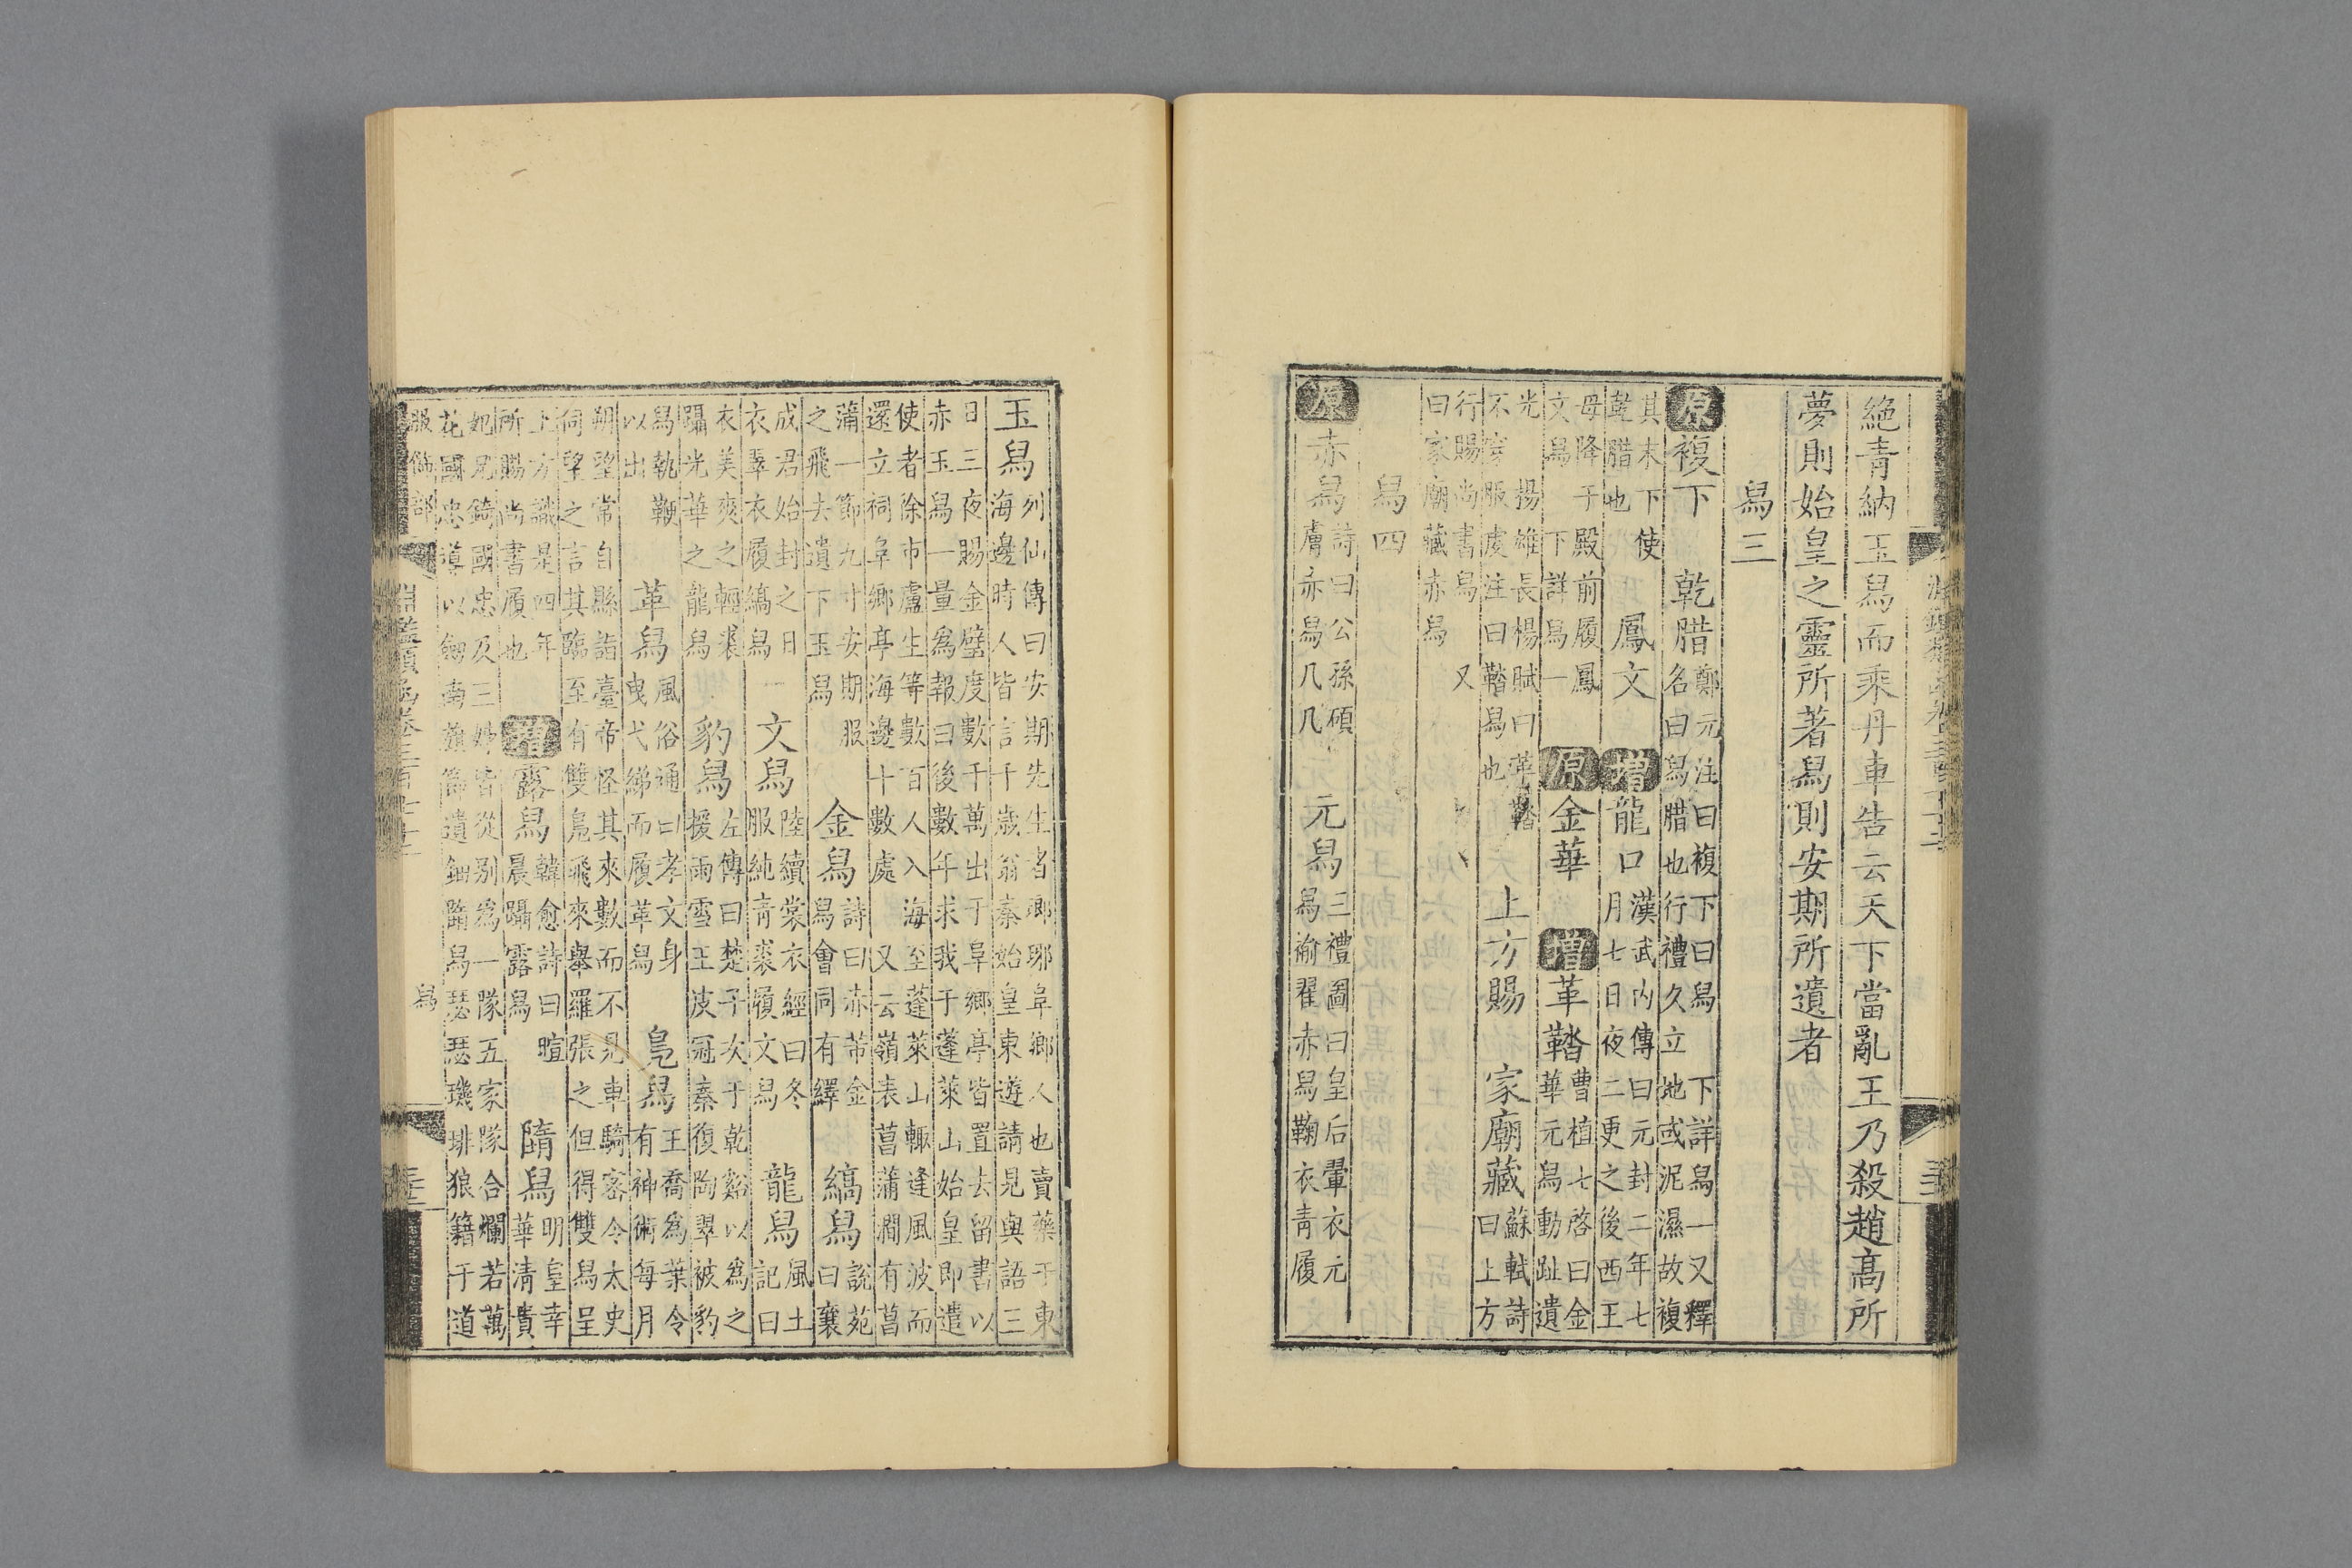 絶青納玉舄而乘丹車告云天下當亂王乃殺趙高所
夢則始皇之靈所著舄則安期所遺者
舄三
原 複下 乾腊 鄭元注曰複下曰舄 下詳舄一 又釋名曰舄腊也行禮久立地或泥濕故複
其末下使乾腊也 鳳文 增 龍口 漢武內傳曰元封二年七月七日夜二更之後西王
母降于殿前履鳳文舄 下詳舄一 原 金華 增 革鞜 曹植七啓曰金華元舄動趾遺
光 揚雄長楊賦曰革鞜不穿服虔注曰鞜舄也 上方賜 家廟藏 蘇軾詩曰上方
行賜尚書舄 又曰家廟藏赤舄
舄四
原 赤舄 詩曰公孫碩膚赤舄几几 元舄 三禮圖曰皇后翬衣元舄褕翟赤舄鞠衣青履
玉舄 列仙傳曰安期先生者瑯琊阜鄉人也賣藥于東海邊時人皆言千歲翁秦始皇東遊請見與語三
日三夜賜金璧度數千萬出于阜鄉亭皆置去留書以赤玉舄一量為報曰後數年求我于蓬萊山始皇即遣
使者徐市盧生等數百人入海至蓬萊山輒逢風波而還立祠阜鄉亭海邊十數處 又云嶺表菖蒲澗有菖
蒲一節九寸安期服之飛去遺下玉舄 金舄 詩曰赤芾金舄會同有繹 縞舄 說苑曰襄
成君始封之日衣翠衣履縞舄 文舄 陸續裳衣經曰冬服純青裘履文舄 龍舄 風土記曰
衣美爽之輕裘躡光華之龍舄 豹舄 左傳曰楚子次于乾谿以為之援雨雪王皮冠秦復陶翠被豹
舄執鞭以出 革舄 風俗通曰孝文身曳弋綈而履革舄 鳧舄 王喬為葉令有神術每月
朔望常自縣詣臺帝怪其來數而不見車騎密令太史伺望之言其臨至有雙鳧飛來舉羅張之但得雙舄呈
上方識是四年所賜尚書履也 增 露舄 韓愈詩曰暄晨躡露舄 隋舄 明皇幸華清貴
妃兄錡國忠及三姊皆從別為一隊五家隊合爛若萬花國忠導以劒南旗節遺鈿墮舄瑟瑟璣琲狼籍于道
服飾部 舄
淵鑑類函卷三百七十五